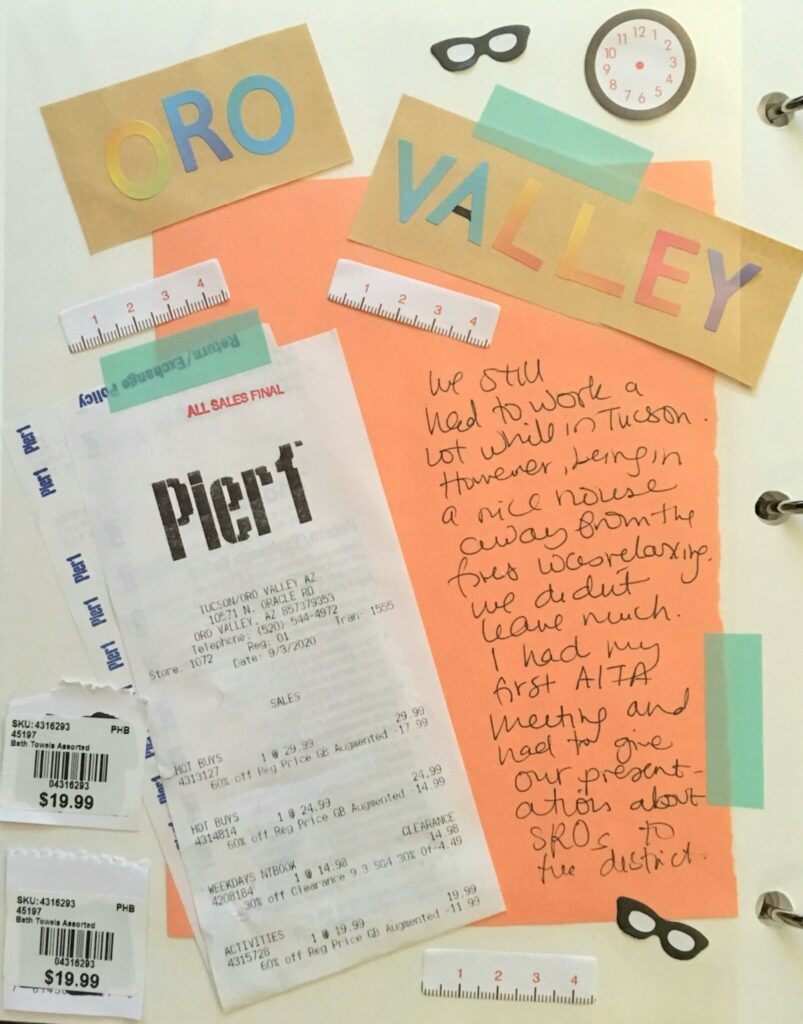 ORO
VALLEY
11 12 1
10 2
9 3
8 4
7 6 5
1 2 3 4
1 2 3 4
Return/Exchange Policy
ALL SALES FINAL
Pier1
Pier1
Pier1
Pier1
Pier1
Pier1
Pier1
TUCSON/ORO VALLEY AZ
10571 N. ORACLE RD
ORO VALLEY, AZ 857379353
Telephone: (520) 544-4972
Store: 1072 Reg: 01 Tran: 1555
Date: 9/3/2020
SALES
HOT BUYS 29.99
4313127 1 @ 29.99
60% off Reg Price GB Augmented -17.99
HOT BUYS 24.99
4314814 1 @ 24.99
60% off Reg Price GB Augmented -14.99
CLEARANCE
WEEKDAYS NTBOOK 14.98
4208184 1 @ 14.98
30% off Clearance 9.3 5G4 30% Of-4.49
ACTIVITIES 19.99
4315728 1 @ 19.99
60% off Reg Price GB Augmented -11.99
we still
had to work a
lot while in Tucson.
However, being in
a nice house
away from the
fires was relaxing.
we didn't
leave much.
I had my
first AITA
meeting and
had to give
our present-
ations about
SROs to
the district.
SKU:4316293 PHB
45197
Bath Towels Assorted
04316293
$19.99
SKU:4316293 PHB
45197
Bath Towels Assorted
04316293
$19.99
1 2 3 4